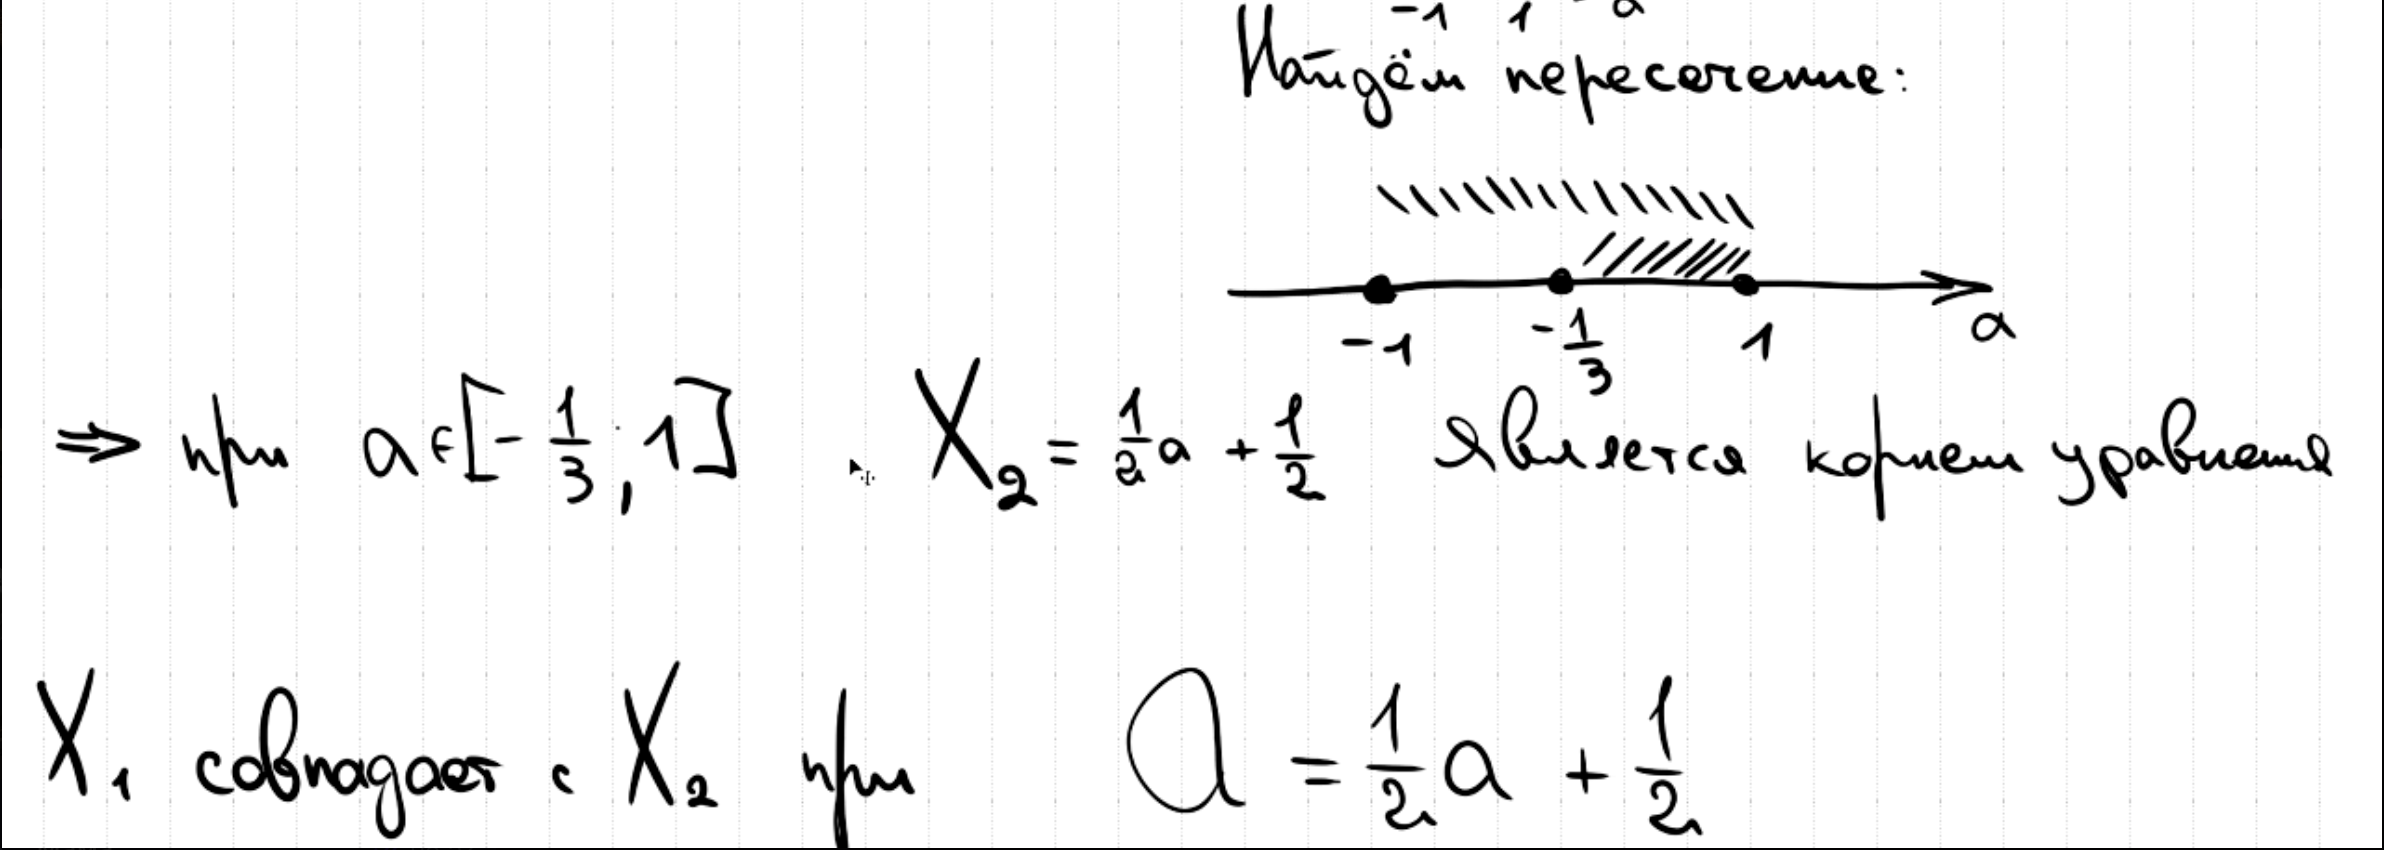 -1 1 a
Найдём пересечение:
-1 -1/3 1 a
⇒ при a ∈ [-1/3; 1] X₂ = 1/2 a + 1/2 является корнем уравнения
X₁ совпадает с X₂ при a = 1/2 a + 1/2